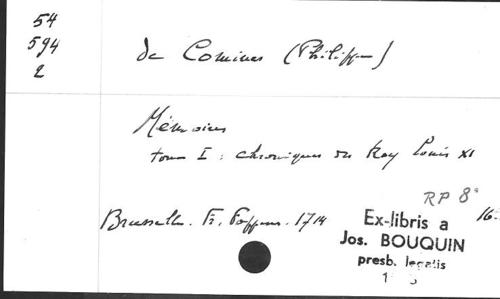 54
594
2
de Comines (Philippe)
Mémoires
tome I : chroniques du Roy Louis XI
RP 8°
Bruxelles. Fr. Foppens. 1714
16
Ex-libris a
Jos. BOUQUIN
presb. legatis